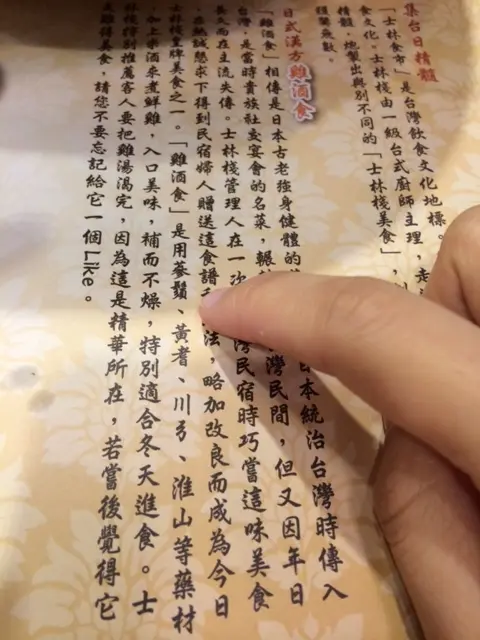 集台日精髓
「士林食市」是台灣飲食文化地標。
食文化。士林棧由一級台式廚師主理，
精髓，炮製出與別不同的「士林棧美食」，
獲獎無數。
日式漢方雞酒食
「雞酒食」相傳是日本古老強身健體的
日本統治台灣時傳入
台灣，是當時貴族社交宴會的名菜，輾
灣民間，但又因年日
久而在主流失傳。士林棧管理人在一次
灣民宿時巧嘗這味美食
，在熱誠懇求下得到民宿婦人贈送這食譜
法，略加改良而成為今日
士林棧皇牌美食之一。「雞酒食」是用蔘鬚、黃耆、川芎、淮山等藥材
，加上米酒來煮鮮雞，入口美味，補而不燥，特別適合冬天進食。士
林棧特別推薦客人要把雞湯渴完，因為這是精華所在，若嘗後覺得它
難得美食，請您不要忘記給它一個Like。